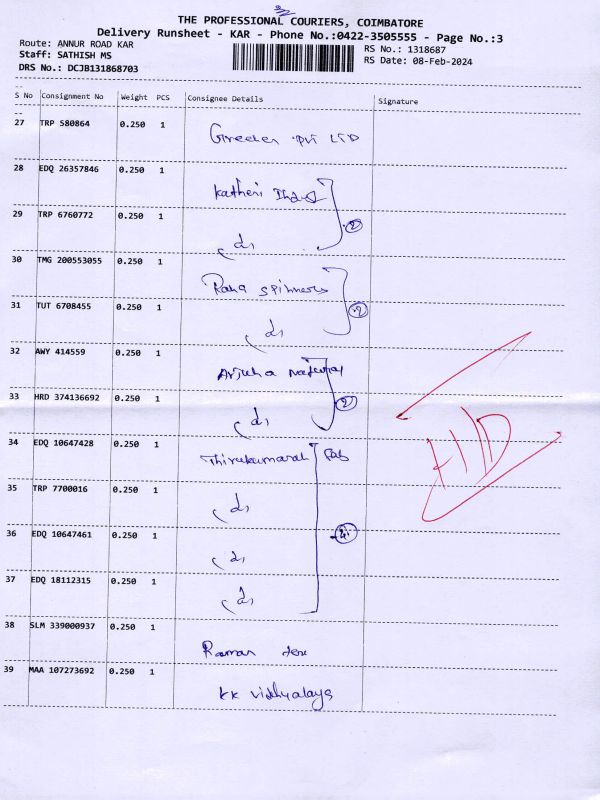 THE PROFESSIONAL COURIERS, COIMBATORE
Delivery Runsheet - KAR - Phone No.:0422-3505555 - Page No.:3
Route: ANNUR ROAD KAR RS No.: 1318687
Staff: SATHISH MS RS Date: 08-Feb-2024
DRS No.: DCJB131868703
S No Consignment No Weight PCS Consignee Details Signature
27 TRP 580864 0.250 1 Greeden Pvt LTD
28 EDQ 26357846 0.250 1 Katheri Indust
29 TRP 6760772 0.250 1 (d)
2
30 TMG 200553055 0.250 1 Rana spinners
31 TUT 6708455 0.250 1 (d)
2
32 AWY 414559 0.250 1 Arjuna Natural
33 HRD 374136692 0.250 1 (d)
2
34 EDQ 10647428 0.250 1 Thirukumaran Fab
35 TRP 7700016 0.250 1 (d)
36 EDQ 10647461 0.250 1 (d)
4
37 EDQ 18112315 0.250 1 (d)
38 SLM 339000937 0.250 1 Raman
39 MAA 107273692 0.250 1 KK Vidhyalaya